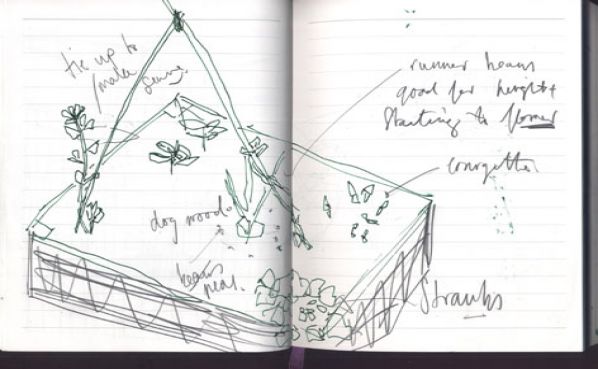 tie up to
make
runner beans
good for height +
starting to flower
courgettes
dog wood
beans
peas.
Strawbs